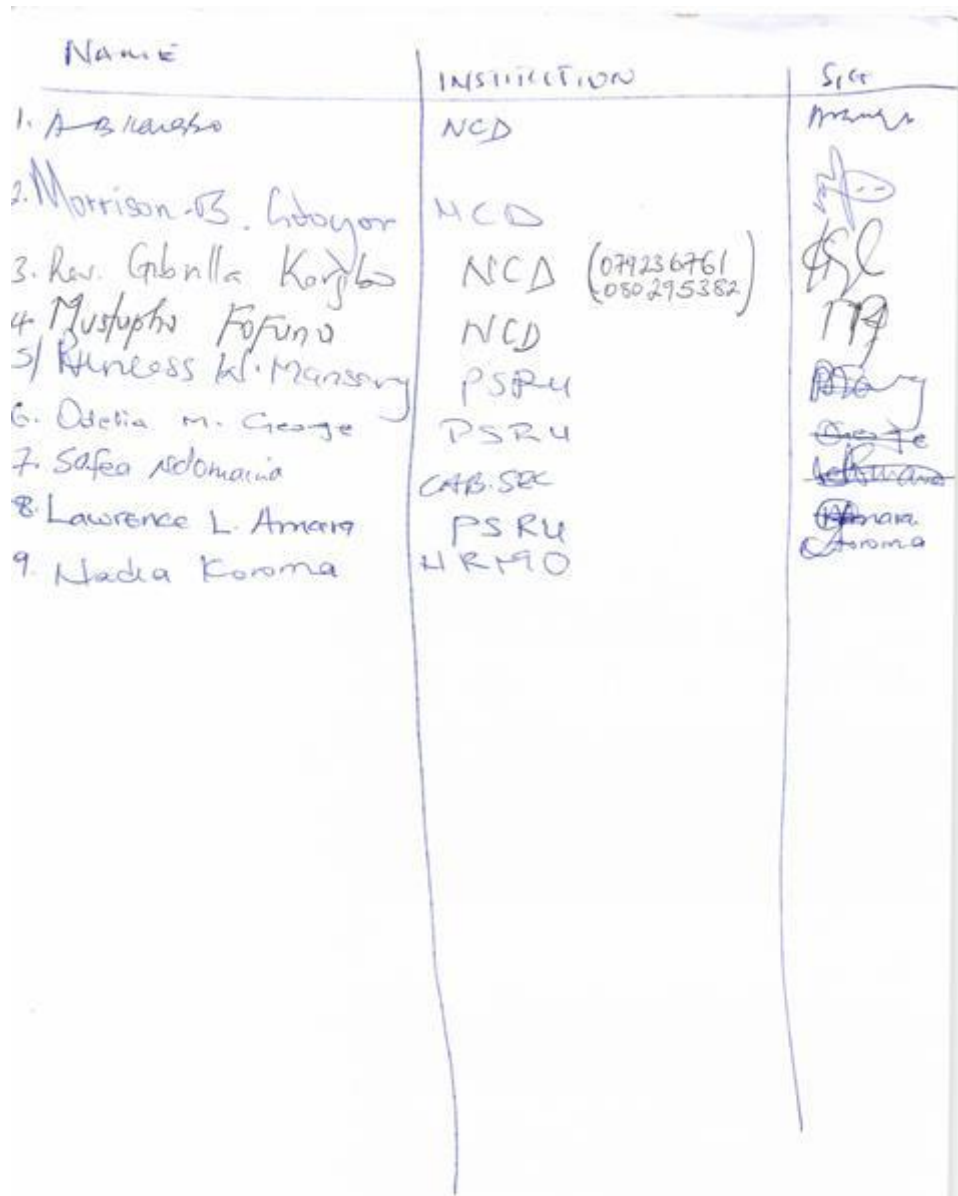 NAME INSTITUTION SIGN
1. A B NCD
2. Morrison-B. NCD
3. Rev. Gibrilla Kargbo NCD (079236761
080295382)
4. Mustupha Fofuna NCD
5/ Princess W. Mansary PSRU
6. Odelia M. George PSRU George
7. Safea Ndomaina CAB.SEC
8. Lawrence L. Amara PSRU Amara
9. Nadia Koroma HRMO Koroma